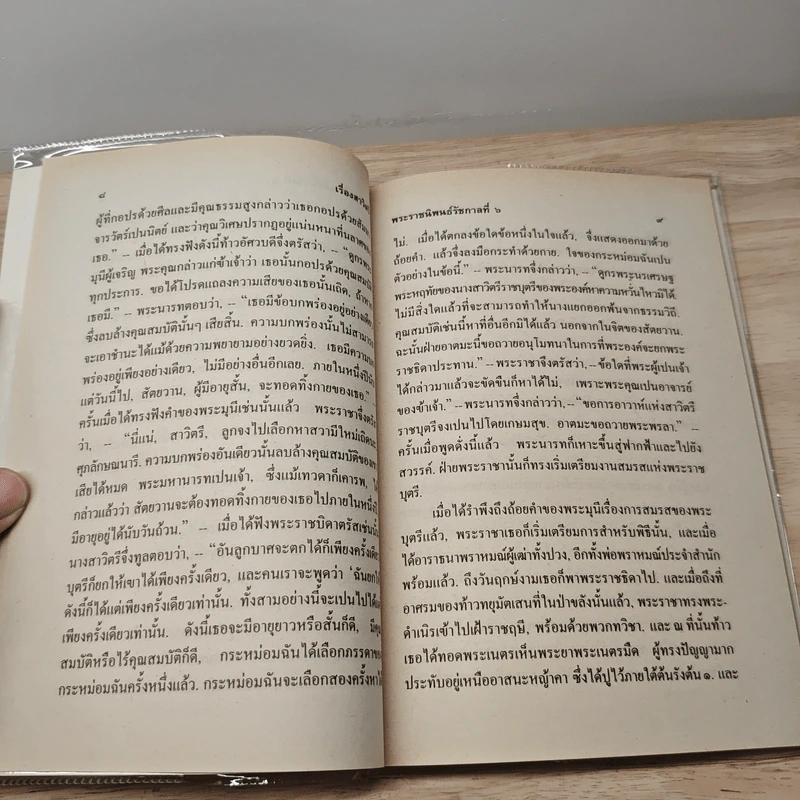 ๘
เรื่องสาวิตรี
ผู้ที่กอปรด้วยศีลและมีคุณธรรมสูงกล่าวว่าเธอกอปรด้วย
จารวัตร์เปนนิตย์ และว่าคุณวิเศษปรากฏอยู่แน่นหนาที่
เธอ.” -- เมื่อได้ทรงฟังดังนี้ท้าวอัศวบดีจึ่งตรัสว่า, -- “ดูกร
มุนีผู้เจริญ พระคุณกล่าวแก่ข้าเจ้าว่า เธอนั้นกอปรด้วยคุณ
ทุกประการ. ขอได้โปรดแถลงความเสียของเธอนั้นเถิด, ถ้า
เธอมี.” -- พระนารทตอบว่า, -- “เธอมีข้อบกพร่องอยู่อย่าง
ซึ่งลบล้างคุณสมบัตินั้นๆ เสียสิ้น. ความบกพร่องนั้นไม่สามารถ
จะเอาชำนะได้แม้ด้วยความพยายามอย่างยวดยิ่ง. เธอมีความ
พร่องอยู่เพียงอย่างเดียว, ไม่มีอย่างอื่นอีกเลย. ภายในหนึ่งปี
แต่วันนี้ไป, สัตยวาน, ผู้มีอายุสั้น, จะทอดทิ้งกายของเธอ.”
ครั้นเมื่อได้ทรงฟังคำของพระมุนีเช่นนั้นแล้ว พระราชาจึ่งตรัส
ว่า, -- “นี่แน่, สาวิตรี, ลูกจงไปเลือกหาสวามีใหม่เถิด
ศุภลักษณนารี. ความบกพร่องอันเดียวนั้นลบล้างคุณสมบัติของ
เสียได้หมด พระมหานารทเปนเจ้า, ซึ่งแม้เทวดาก็เคารพ,
กล่าวแล้วว่า สัตยวานจะต้องทอดทิ้งกายของเธอไปภายในหนึ่ง
มีอายุอยู่ได้นับวันถ้วน.” -- เมื่อได้ฟังพระราชบิดาตรัสเช่นนั้น
นางสาวิตรีจึ่งทูลตอบว่า, -- “อันลูกบาศจะตกได้ก็เพียงครั้งเดียว
บุตรีก็ยกให้เขาได้เพียงครั้งเดียว, และคนเราจะพูดว่า ‘ฉันยกให้
ดังนี้ก็ได้แต่เพียงครั้งเดียวเท่านั้น. ทั้งสามอย่างนี้จะเปนไปได้
เพียงครั้งเดียวเท่านั้น. ดังนี้เธอจะมีอายุยาวหรือสั้นก็ดี,
สมบัติหรือไร้คุณสมบัติก็ดี, กระหม่อมฉันได้เลือกภรรดา
กระหม่อมฉันครั้งหนึ่งแล้ว. กระหม่อมฉันจะเลือกสองครั้ง
พระราชนิพนธ์รัชกาลที่ ๖
๙
ไม่. เมื่อได้ตกลงข้อใดข้อหนึ่งในใจแล้ว, จึ่งแสดงออกมาด้วย
ถ้อยคำ. แล้วจึ่งลงมือกระทำด้วยกาย. ใจของกระหม่อมฉันเปน
ตัวอย่างในข้อนี้.” -- พระนารทจึ่งกล่าวว่า, -- “ดูกรพระนรเศรษฐ
พระหฤทัยของนางสาวิตรีราชบุตรีของพระองค์หาความหวั่นไหวมิได้.
ไม่มีสิ่งใดแล้วที่จะสามารถทำให้นางแยกออกพ้นจากธรรมวิถี.
คุณสมบัติเช่นนี้หาที่อื่นอีกมิได้แล้ว นอกจากในจิตของสัตยวาน.
ฉะนั้นฝ่ายอาตมะนี้ขอถวายอนุโมทนาในการที่พระองค์จะยกพระ
ราชธิดาประทาน.” -- พระราชาจึ่งตรัสว่า, -- ข้อใดที่พระผู้เปนเจ้า
ได้กล่าวมาแล้วจะขัดขืนก็หาได้ไม่, เพราะพระคุณเปนอาจารย์
ของข้าเจ้า.” -- พระนารทจึ่งกล่าวว่า, -- “ขอการอาวาห์แห่งสาวิตรี
ราชบุตรีจงเปนไปโดยเกษมสุข. อาตมะขอถวายพระพรลา.” --
ครั้นเมื่อพูดดั่งนี้แล้ว พระนารทก็เหาะขึ้นสู่ฟากฟ้าและไปยัง
สวรรค์. ฝ่ายพระราชานั้นก็ทรงเริ่มเตรียมงานสมรสแห่งพระราช
บุตรี.
เมื่อได้รำพึงถึงถ้อยคำของพระมุนีเรื่องการสมรสของพระ
บุตรีแล้ว, พระราชาเธอก็เริ่มเตรียมการสำหรับพิธีนั้น, และเมื่อ
ได้อาราธนาพราหมณ์ผู้เฒ่าทั้งปวง, อีกทั้งพ่อพราหมณ์ประจำสำนัก
พร้อมแล้ว. ถึงวันฤกษ์งามเธอก็พาพระราชธิดาไป. และเมื่อถึงที่
อาศรมของท้าวทยุมัตเสนที่ในป่าขลังนั้นแล้ว, พระราชาทรงพระ-
ดำเนิรเข้าไปเฝ้าราชฤษี, พร้อมด้วยพวกทวิชา. และ ณ ที่นั้นท้าว
เธอได้ทอดพระเนตรเห็นพระยาพระเนตรมืด ผู้ทรงปัญญามาก
ประทับอยู่เหนืออาสนะหญ้าคา ซึ่งได้ปูไว้ภายใต้ต้นรังต้น ๑. และ